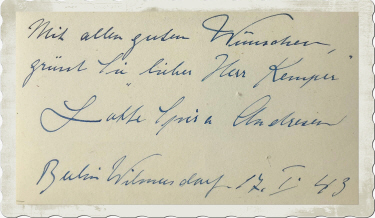 Mit allen guten Wünschen,
grüsst Sie lieber Herr Kemper
Lotte Spira Andresen
Berlin Wilmersdorf. 17. I. 43